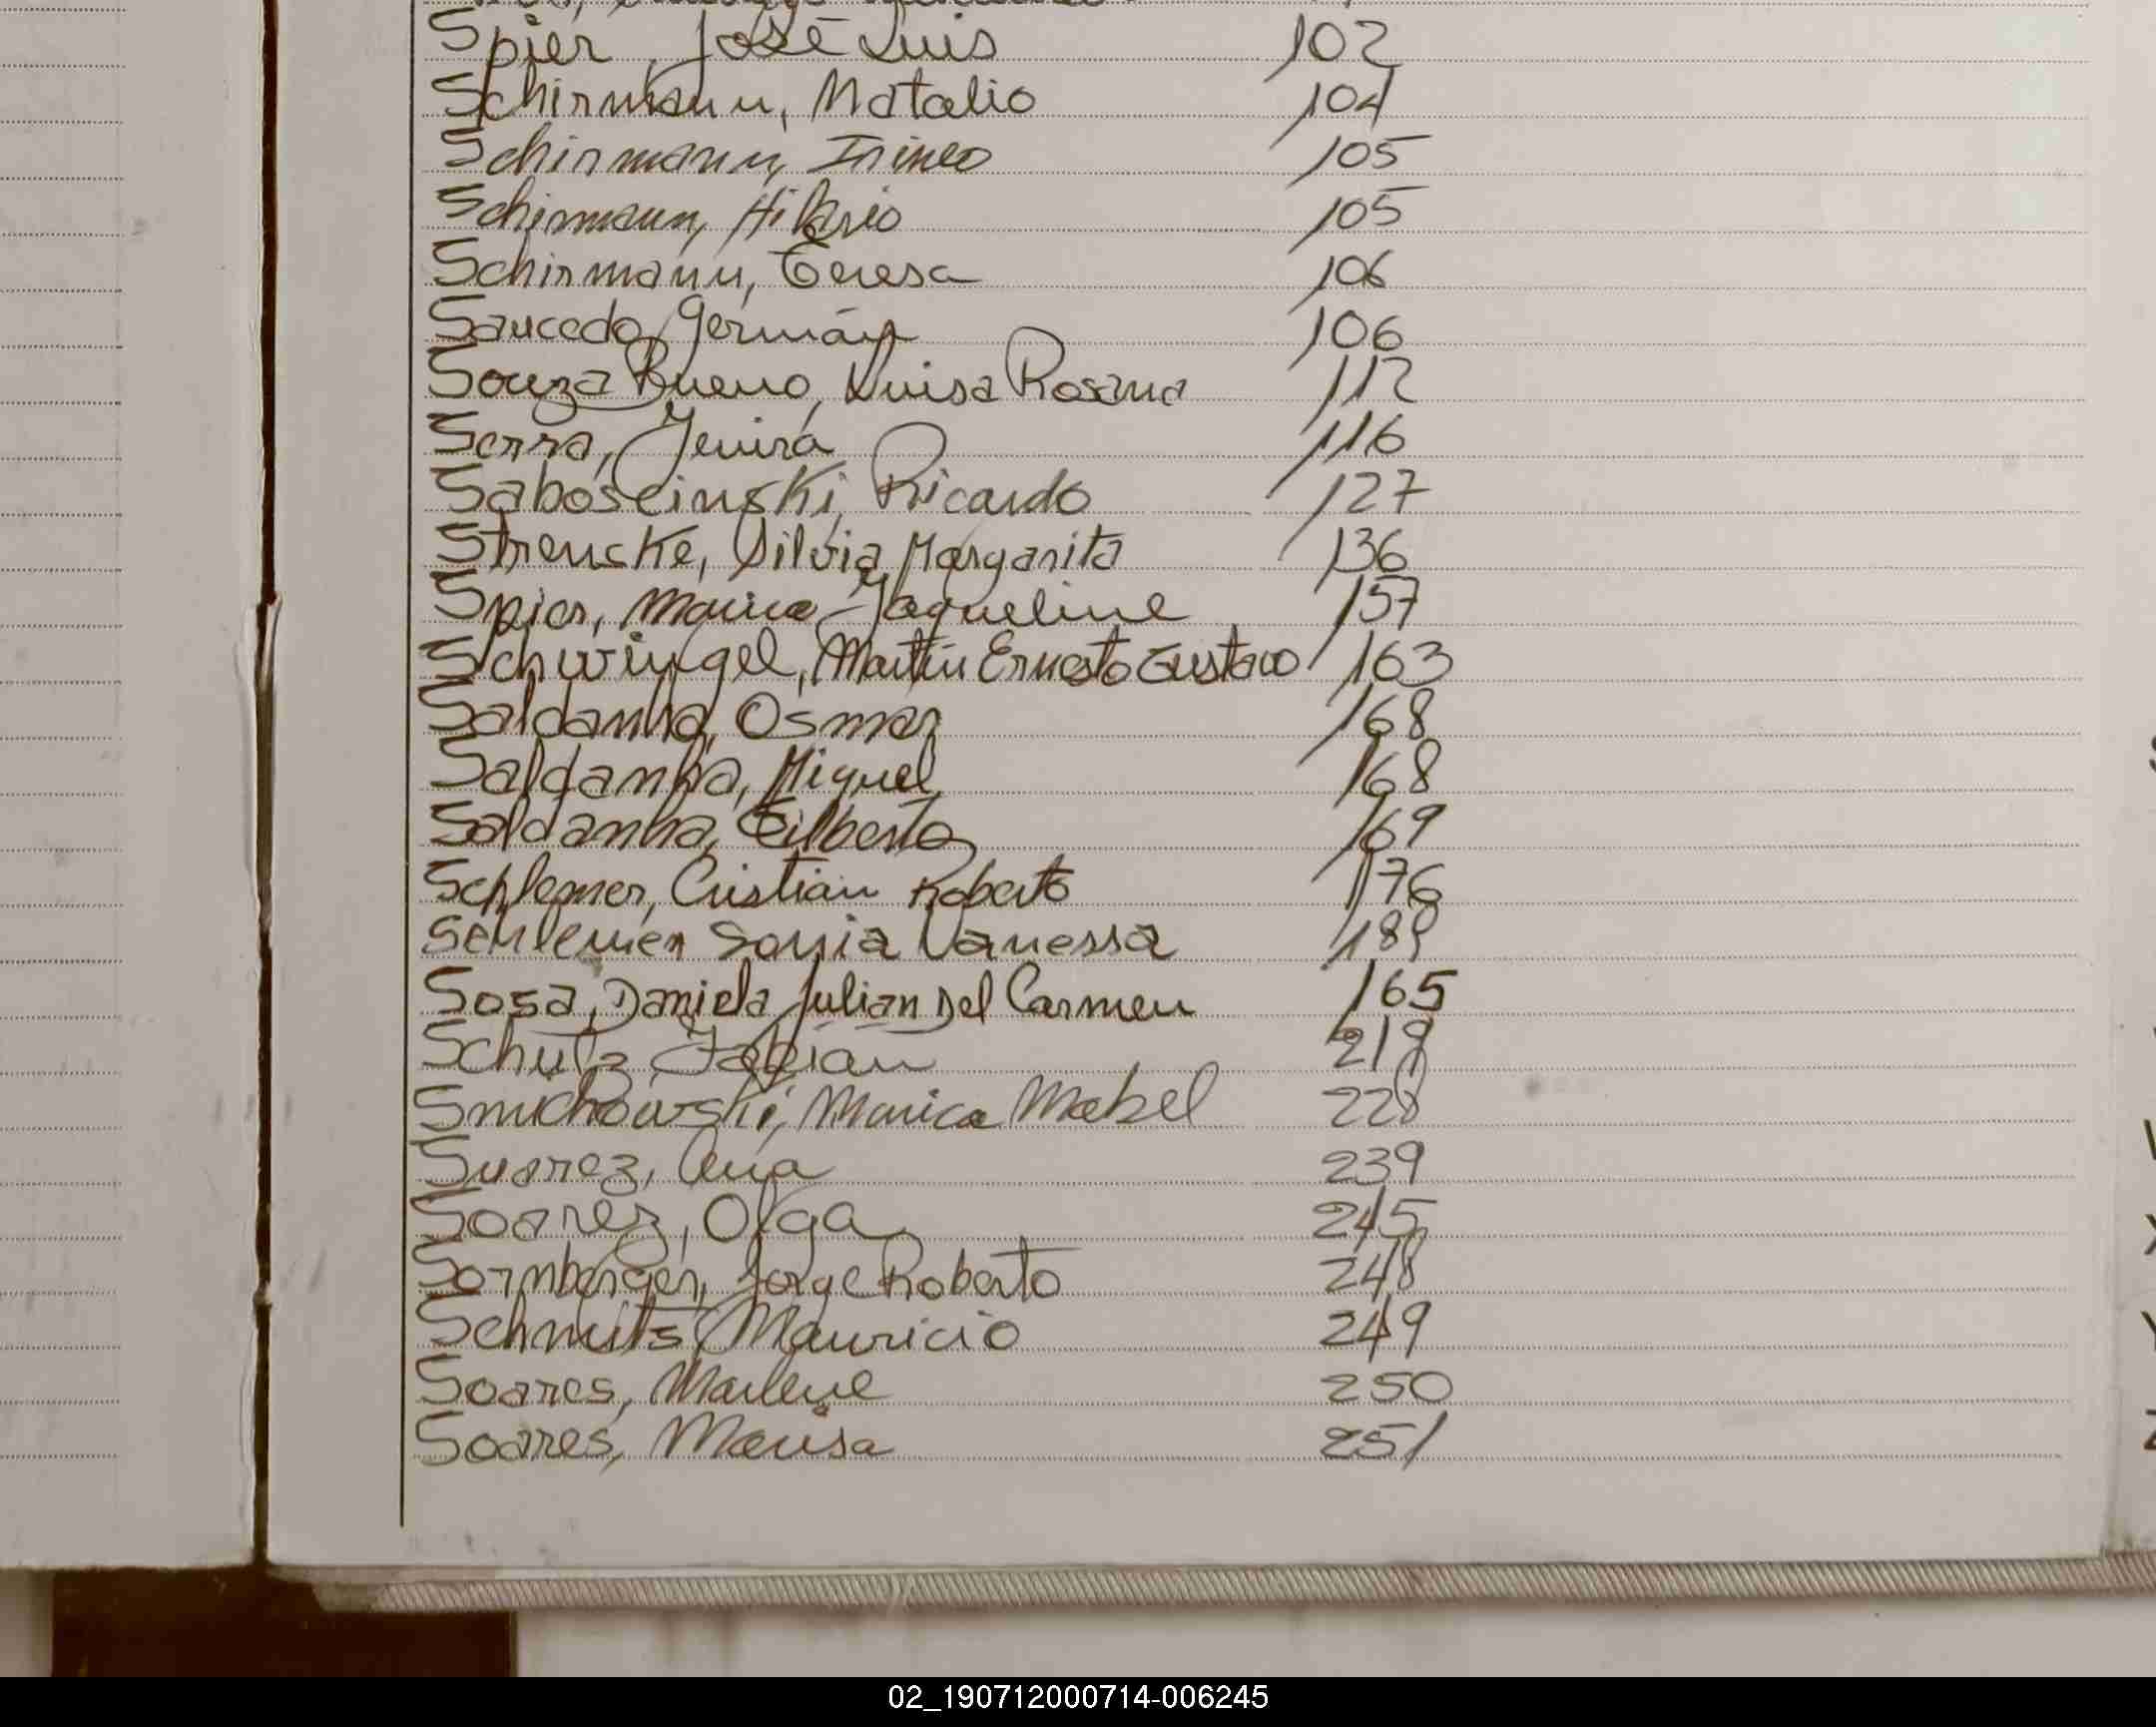 Spier, José Luis 102
Schirmann, Natalio 104
Schirmann, Irineo 105
Schirmann, Hilario 105
Schirmann, Teresa 106
Saucedo, Germán 106
Souza Bueno, Luisa Rosana 112
Serra, Jenira 116
Saboscinski, Ricardo 127
Strenske, Silvia Margarita 136
Spier, Maria Jaqueline 157
Schwingel, Martin Ernesto Gustavo 163
Saldanha, Osmar 168
Saldanha, Miguel 168
Saldanha, Gilberto 169
Schlemer, Cristian Roberto 176
Schlemer Sonia Vanessa 189
Sosa, Daniela Julian Del Carmen 165
Schutz, Fabian 219
Smichowski, Marica Mabel 228
Suarez, Ana 239
Soarez, Olga 245
Sornberger, Jorge Roberto 248
Schmits, Mauricio 249
Soares, Marlene 250
Soares, Marisa 251
02_190712000714-006245